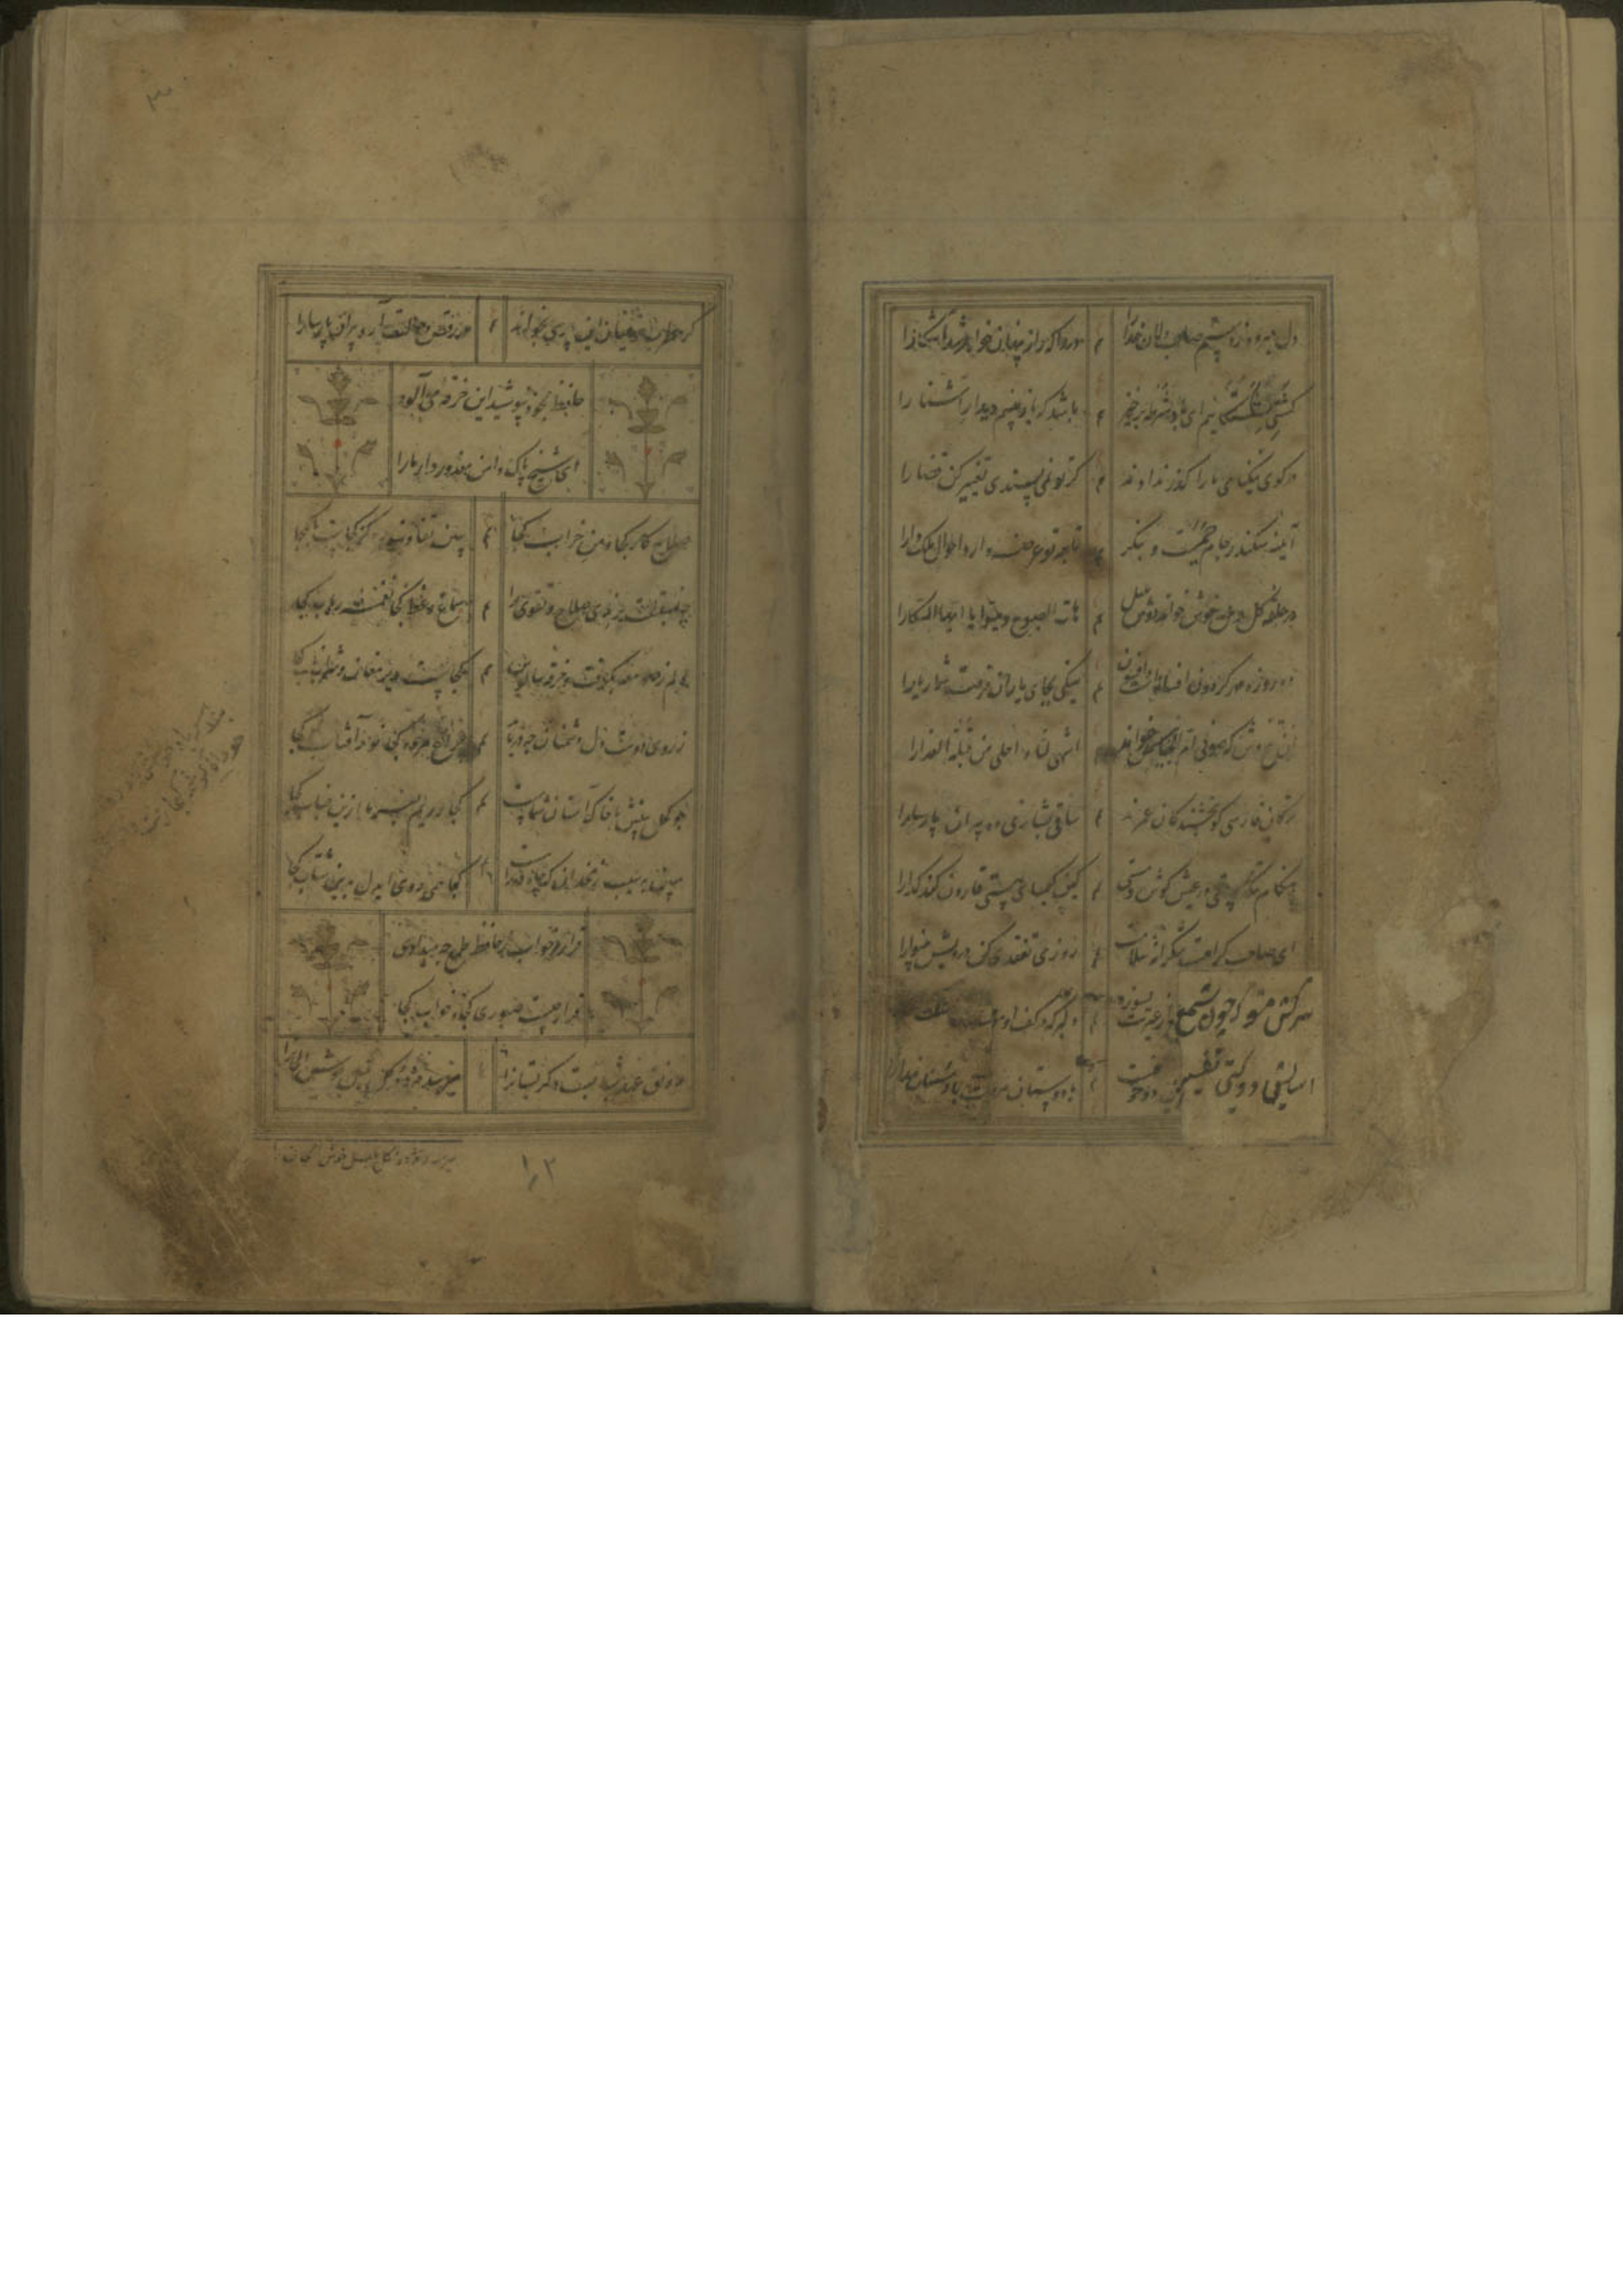 دل میرود ز دستم صاحب دلان خدا را م دردا که راز پنهان خواهد شد آشکارا
کشتی شکستگانیم ای باد شرطه برخیز م باشد که باز بینیم دیدار آشنا را
در کوی نیکنامی ما را گذر ندادند م گر تو نمی پسندی تغییر کن قضا را
آیینه سکندر جام جمست و بنگر تا بر تو عرضه دارد احوال ملک دارا
در حلقه گل و مل خوش خواند دوش بلبل م هات الصبوح یا ایها السکارا
ده روزه مهر گردون افسانه است و افسون م نیکی بجای یاران فرصت شمار یارا
آن تلخ وش که صوفی ام الخبایثش خواند اشهی لنا و احلی من قبلة العذارا
ترکان فارسی گو بخشندگان عمرند م ساقی بشارتی ده پیران پارسا را
هنگام تنگ دستی در عیش کوش و مستی م کین کیمیای هستی قارون کند گدا را
ای صاحب کرامت شکرانه سلامت م روزی تفقدی کن درویش بینوا را
سرکش مشو که چون شمع از غیرتت بسوزد دلبر که در کف او
آسایش دو گیتی تفسیر این دو حرفست با دوستان مروت با دشمنان مدارا
گر مطرب حریفان این پارسی بخواند م در رقص و حالت آرد پیران پارسا را
حافظ بخود نپوشید این خرقه می آلود
ای شیخ پاک دامن معذور دار ما را
صلاح کار کجا و من خراب کجا م ببین تفاوت ره کز کجاست تا بکجا
چه نسبتست برندی صلاح و تقوی را م سماع وعظ کجا نغمه رباب کجا
دلم ز صومعه بگرفت و خرقه سالوس م کجاست دیر مغان و شراب ناب کجا
ز روی دوست دل دشمنان چه دریابد م چراغ مرده کجا نور آفتاب کجا
چو کحل بینش ما خاک آستان شماست م کجا رویم بفرما ازین جناب کجا
مبین به سیب زنخدان که چاه در راهست م کجا همی روی ای دل بدین شتاب کجا
قرار و خواب ز حافظ طمع چه میداری
قرار چیست صبوری کجا و خواب کجا
رونق عهد شبابست دگر بستان را میرسد مژده گل بلبل خوش الحان را
میرسد مژده گل بلبل خوش الحان
۱۳